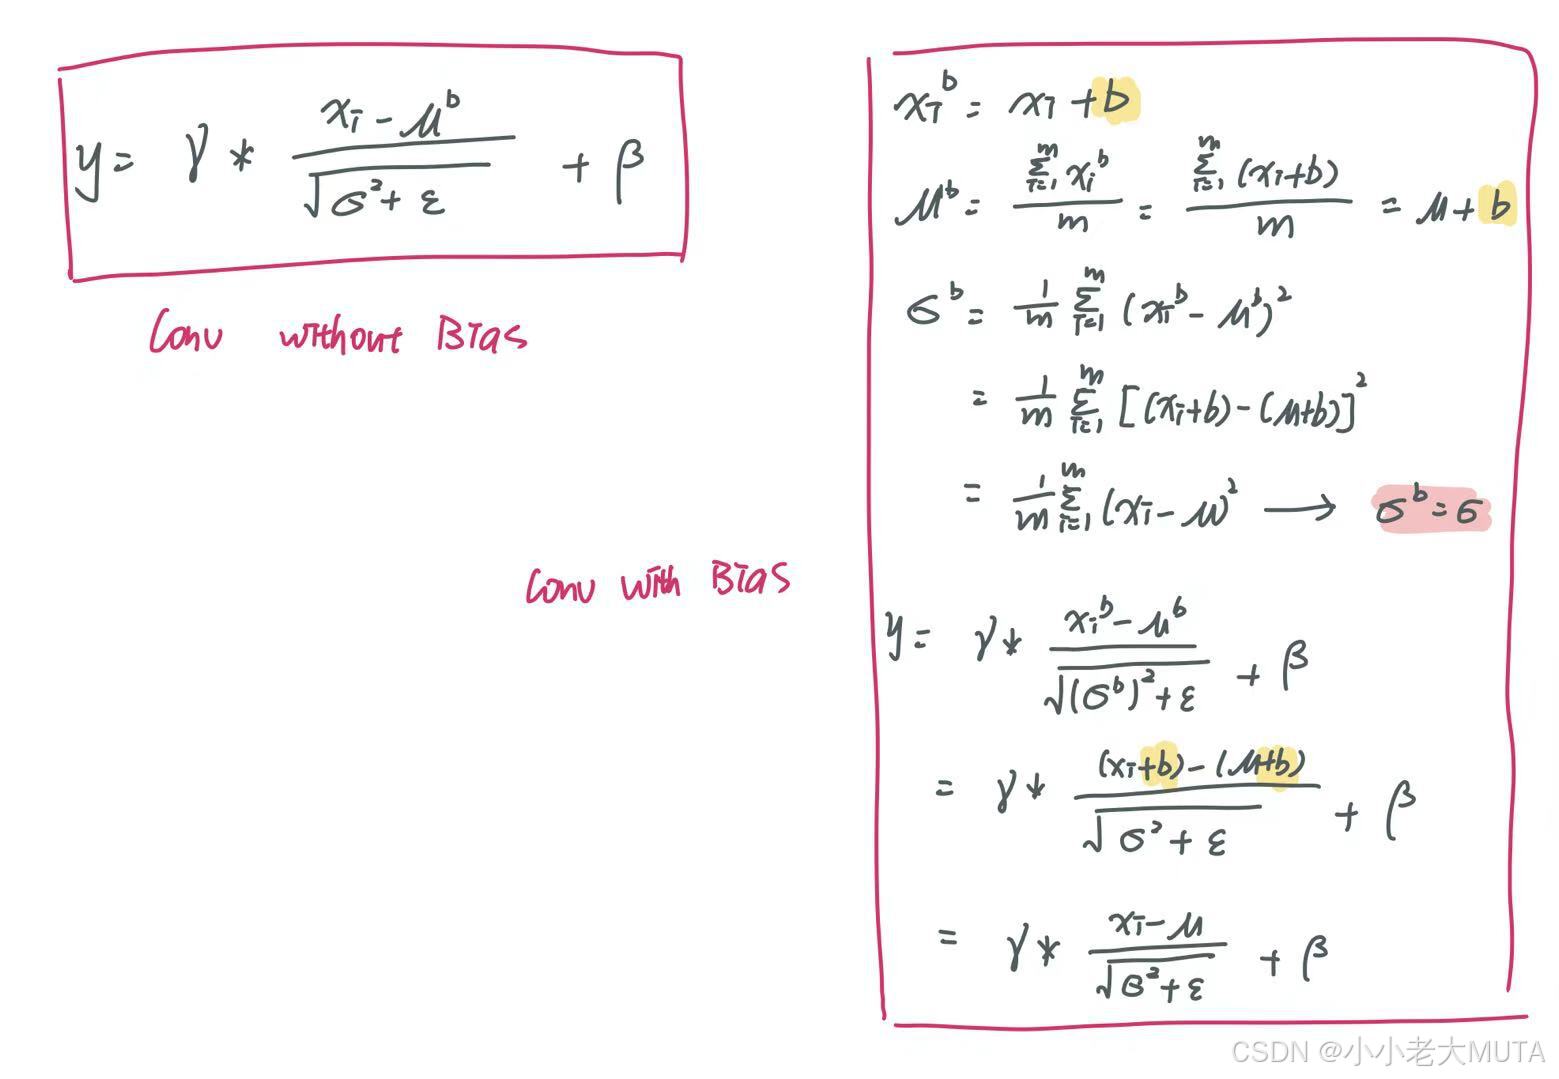 y = γ * (xi - μ^b) / √(σ² + ε) + β
Conv without Bias
xi^b = xi + b
μ^b = Σ_{i=1}^{m} xi^b / m = Σ_{i=1}^{m} (xi+b) / m = μ + b
σ^b = 1/m Σ_{i=1}^{m} (xi^b - μ^b)²
= 1/m Σ_{i=1}^{m} [(xi+b) - (μ+b)]²
= 1/m Σ_{i=1}^{m} (xi - μ)² → σ^b = σ
Conv with Bias
y = γ * (xi^b - μ^b) / √((σ^b)² + ε) + β
= γ * ((xi+b) - (μ+b)) / √(σ² + ε) + β
= γ * (xi - μ) / √(σ² + ε) + β
CSDN @小小老大MUTA